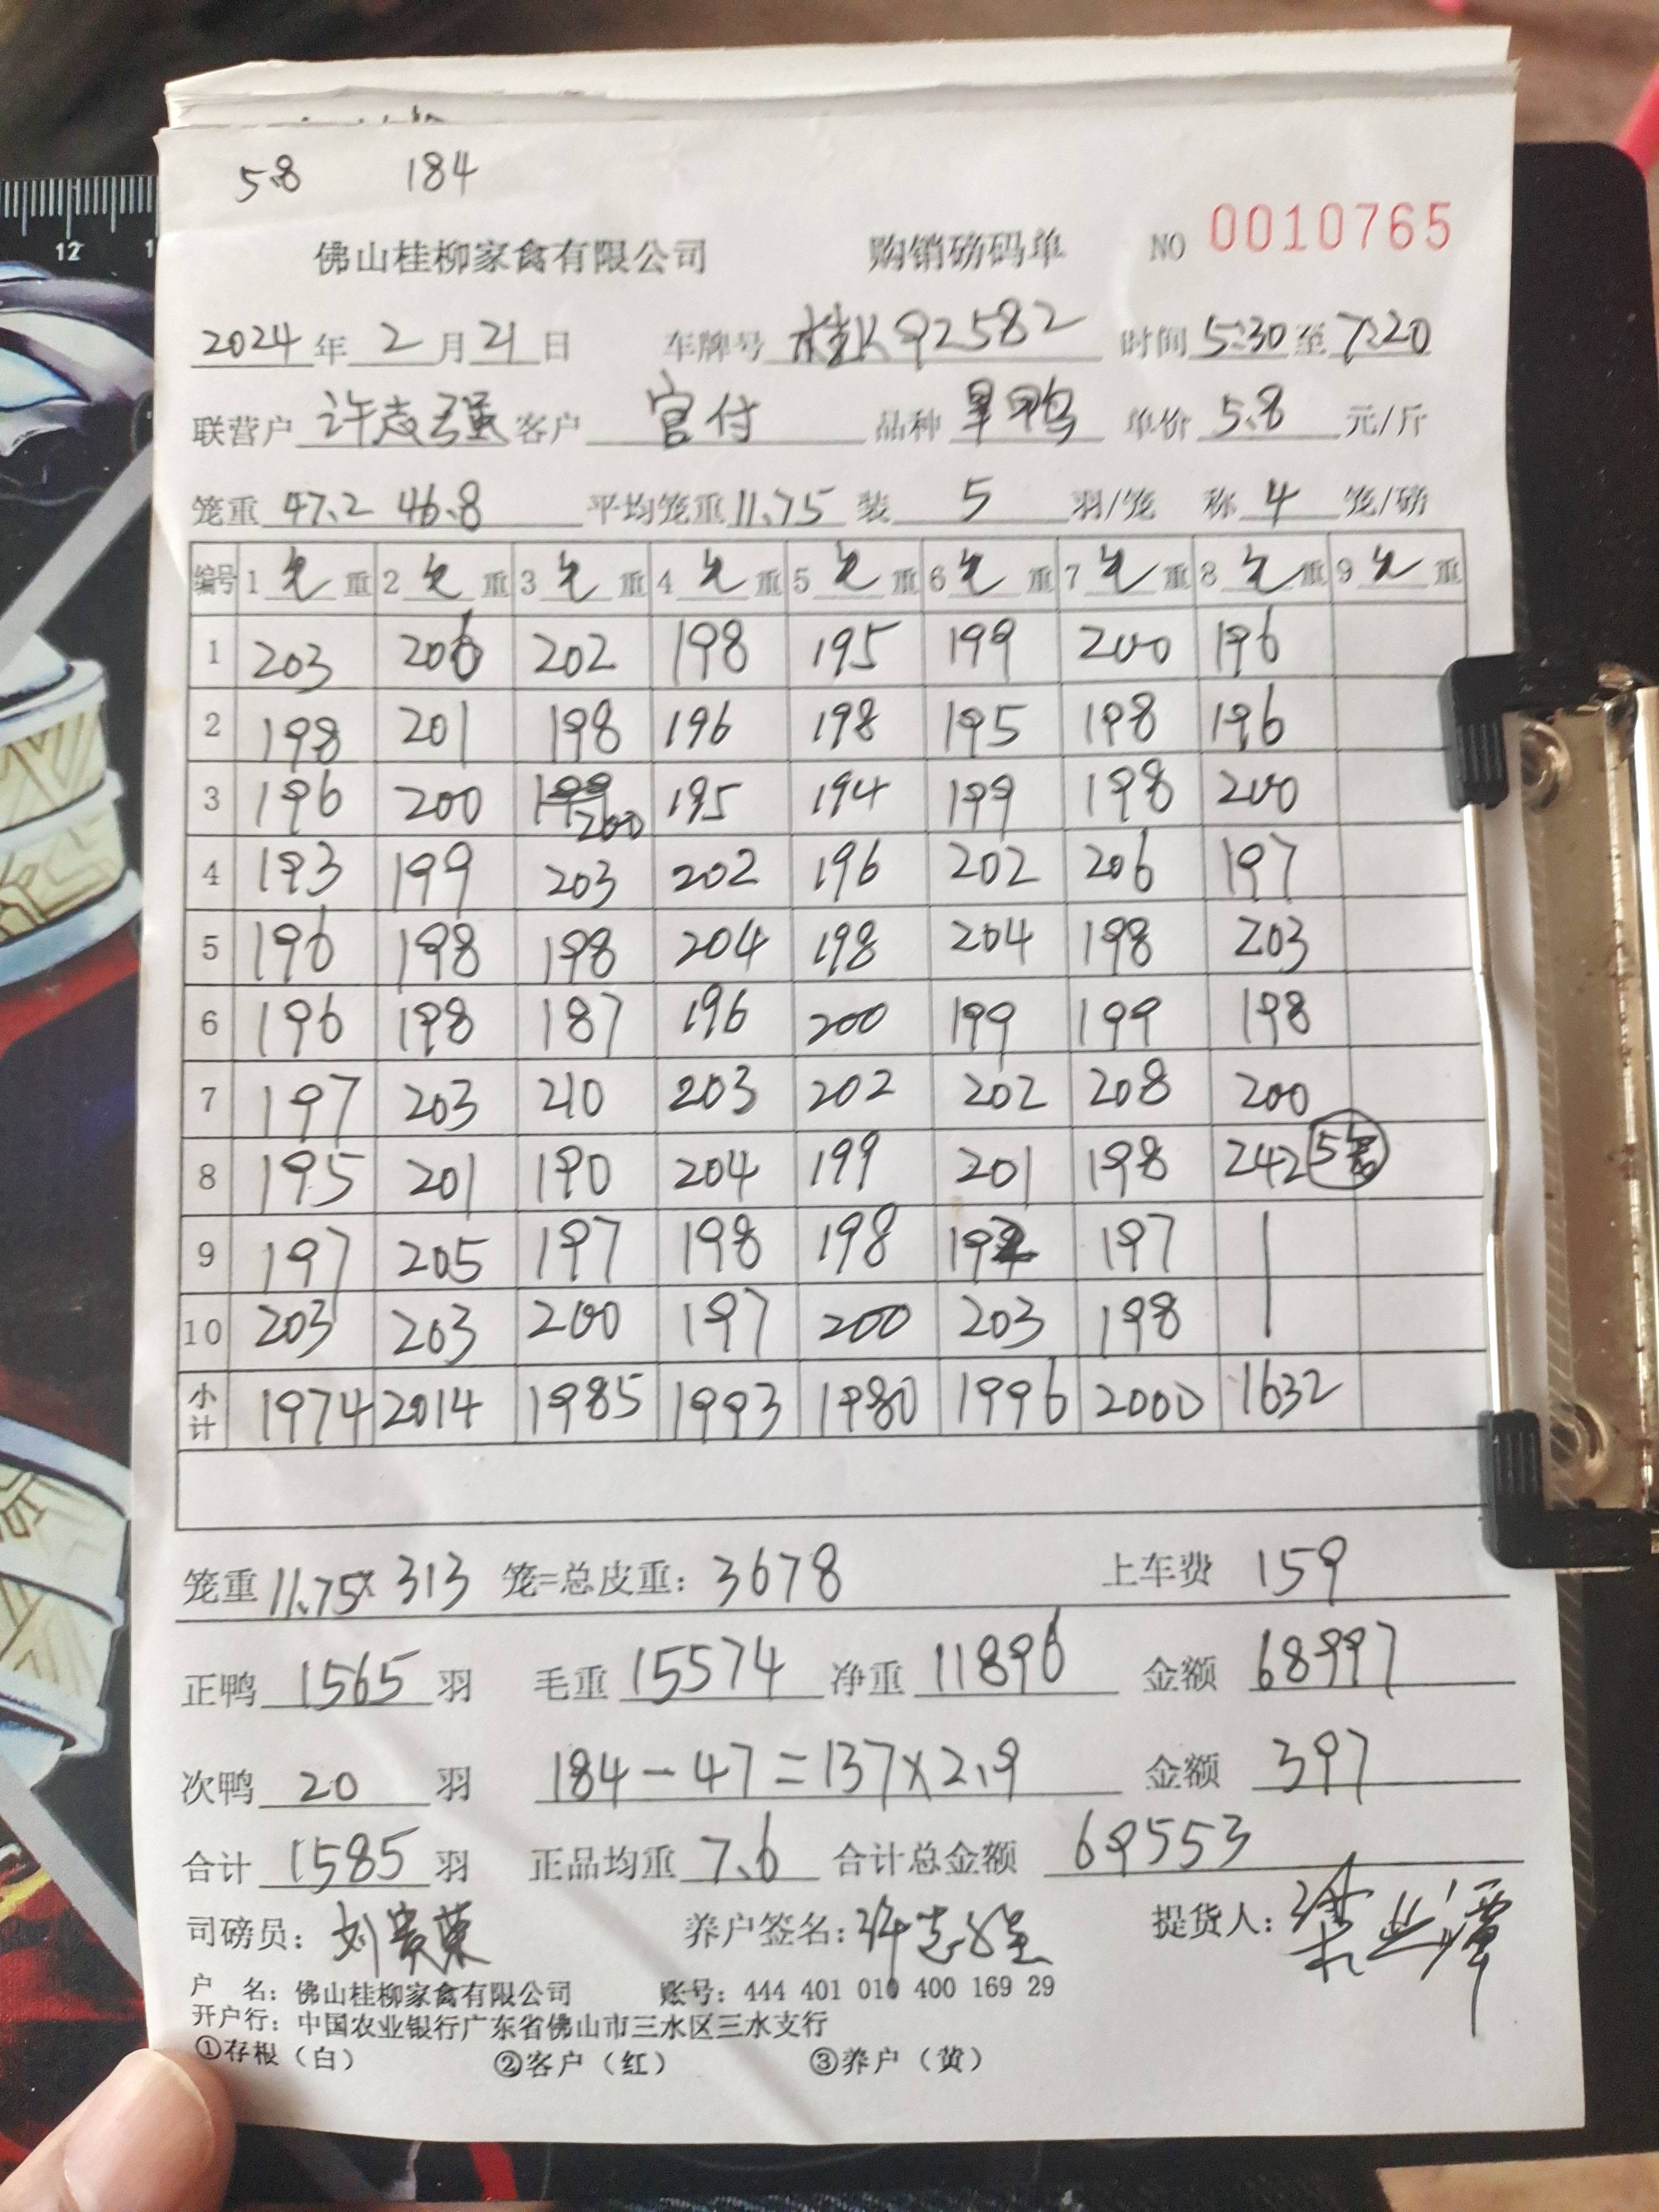 12
5.8 184
佛山桂柳家禽有限公司 购销磅码单 NO 0010765
2024年2月21日 车牌号 桂K92582 时间5:30至7:20
联营户 许志强 客户 官付 品种 旱鸭 单价 5.8 元/斤
笼重 47.2 46.8 平均笼重 11.75 装 5 羽/笼 称 4 笼/磅
编号 1 毛 重 2 毛 重 3 毛 重 4 毛 重 5 毛 重 6 毛 重 7 毛 重 8 毛 重 9 毛 重
1 203 206 202 198 195 199 200 196
2 198 201 198 196 198 195 198 196
3 196 200 199 200 195 194 199 198 200
4 193 199 203 202 196 202 206 197
5 196 198 198 204 198 204 198 203
6 196 198 187 196 200 199 199 198
7 197 203 210 203 202 202 208 200
8 195 201 190 204 199 201 198 242 5笼
9 197 205 197 198 198 192 197
10 203 203 200 197 200 203 198
小计 1974 2014 1985 1993 1980 1996 2000 1632
笼重 11.75 x 313 笼=总皮重: 3678 上车费 159
正鸭 1565 羽 毛重 15574 净重 11896 金额 68997
次鸭 20 羽 184-47=137x2.9 金额 397
合计 1585 羽 正品均重 7.6 合计总金额 69553
司磅员: 刘 荣 养户签名: 许志强 提货人:
户 名: 佛山桂柳家禽有限公司 账号: 444 401 010 400 169 29
开户行: 中国农业银行广东省佛山市三水区三水支行
①存根（白） ②客户（红） ③养户（黄）